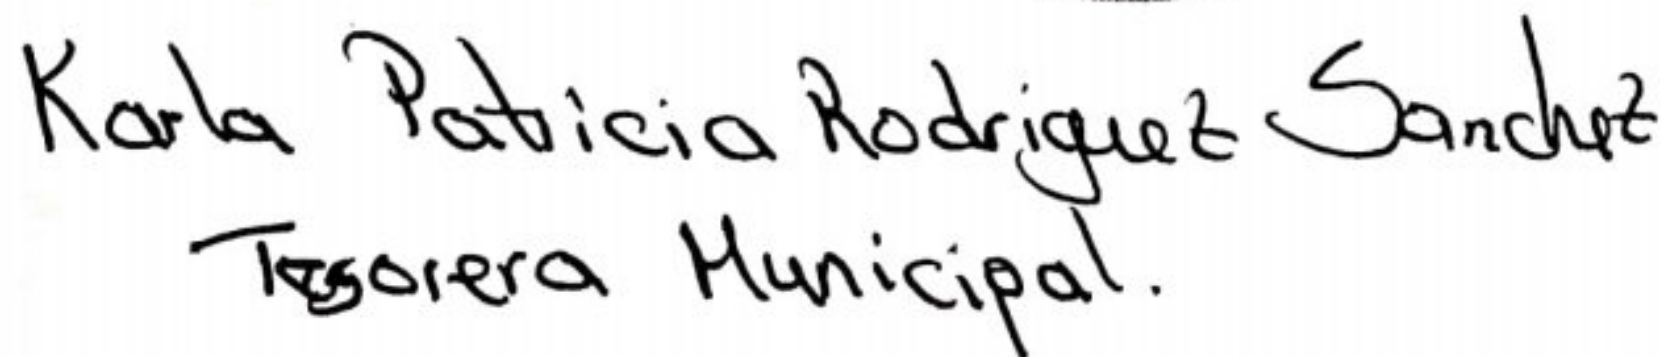 Karla Patricia Rodriguez Sanchez
Tesorera Municipal.